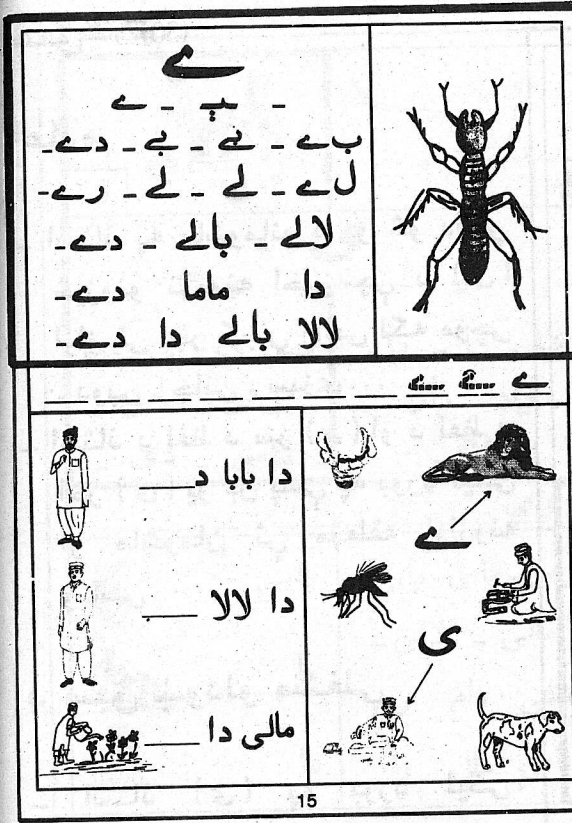 ے
ـ ـیـ ـ ے
ب ے ـ نے ـ بے ـ دے ـ
ل ے ـ لے ـ لے ـ رے ـ
لالے ـ بالے ـ دے ـ
دا ماما دے ـ
لالا بالے دا دے ـ
ے ے ے
دا بابا د____
دا لالا ____
مالی دا ____
ے
ی
15